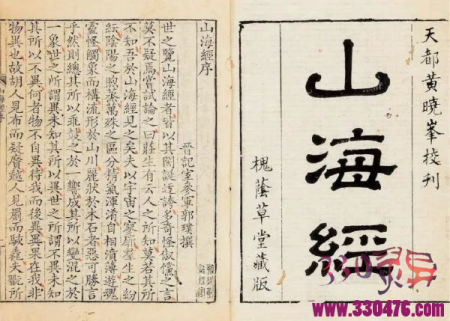 天都黃曉峯校刊
山海經
槐蔭草堂藏版
山海經序
晉記室參軍郭璞撰
世之覽山海經者皆以其閎誕迂誇多奇怪俶儻之言
莫不疑焉嘗試論之曰莊生有云人之所知莫若其所
不知吾於山海經見之矣夫以宇宙之寥廓羣生之紛
紜陰陽之煦蒸萬殊之區分精氣渾淆自相濆薄遊魂
靈怪觸象而構流形於山川麗狀於木石者惡可勝言
乎然則總其所以乖鼓之於一響成其所以變混之於
一象世之所謂異未知其所以異世之所謂不異未知
其所以不異何者物不自異待我而後異異果在我非
物異也故胡人見布而疑黂越人見罽而駭毳夫翫所
www.330476.com